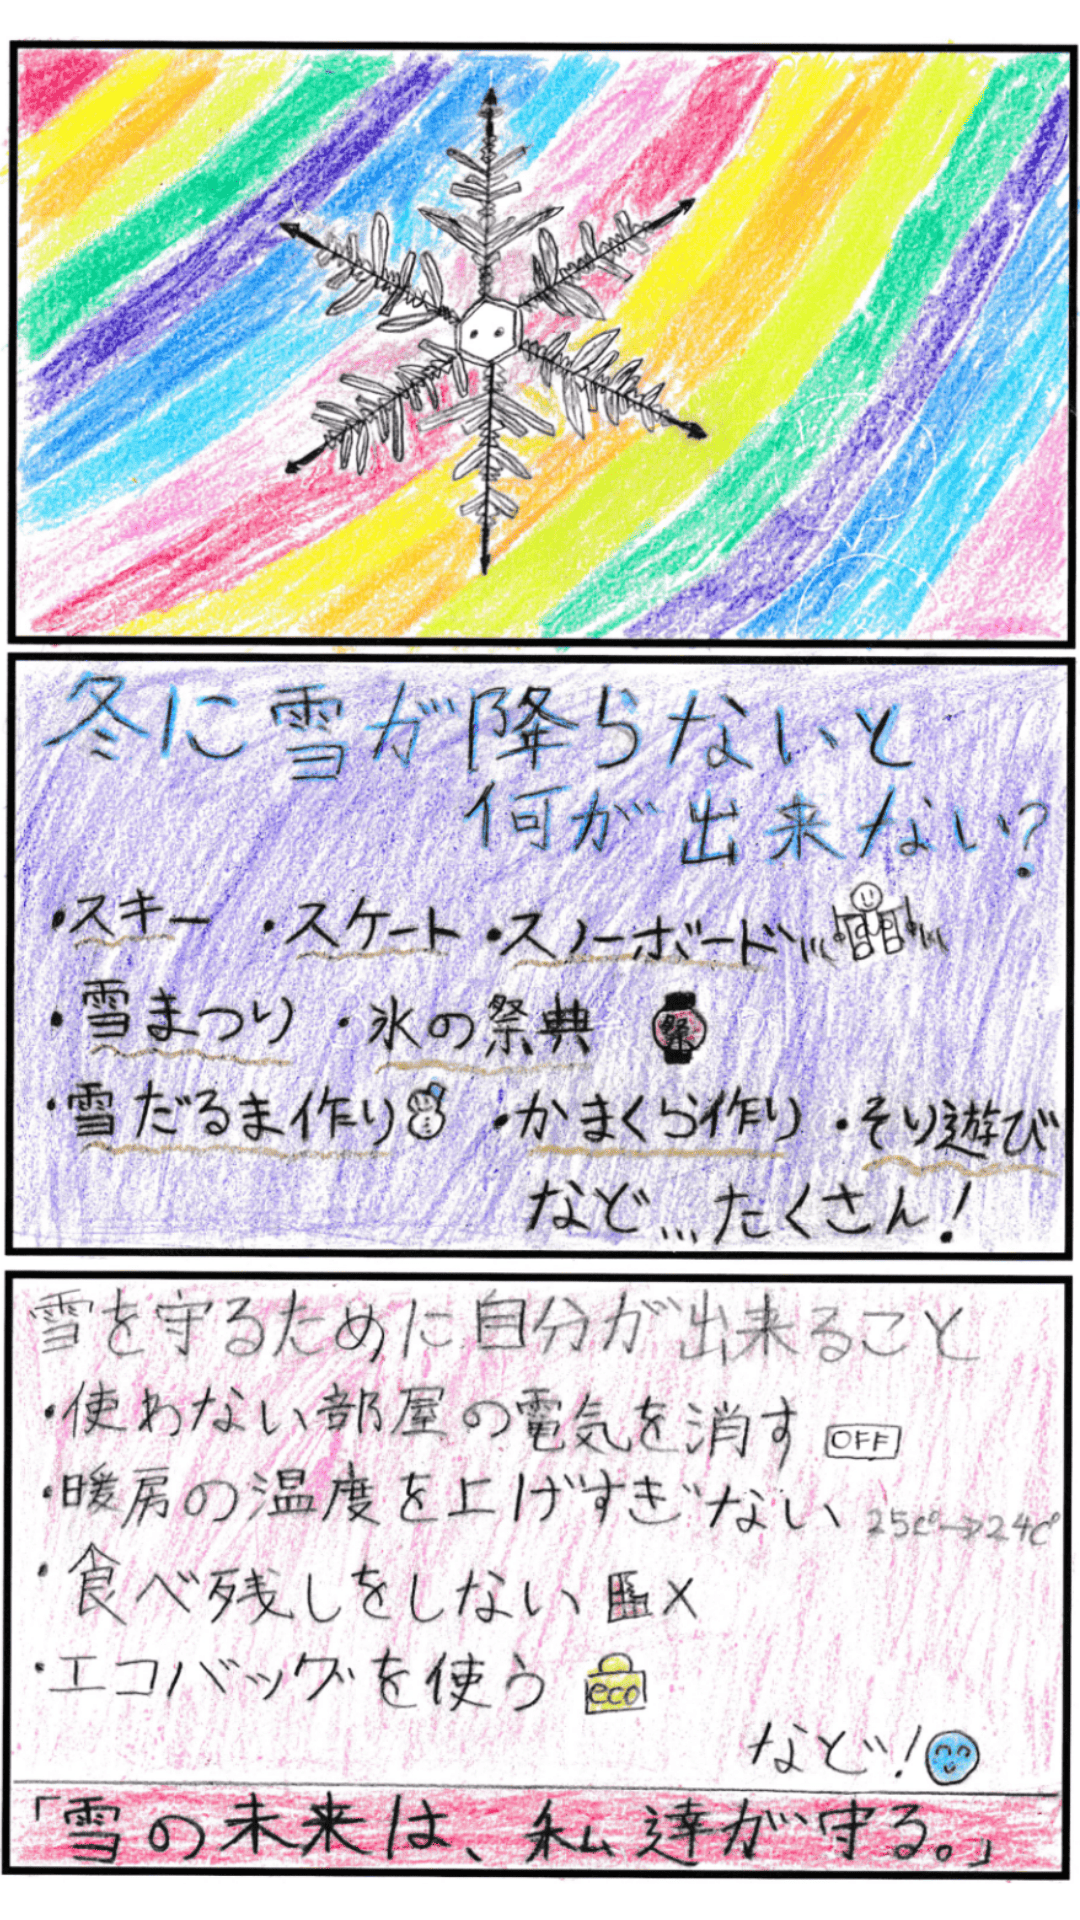 冬に雪が降らないと
何が出来ない?
・スキー ・スケート ・スノーボード
・雪まつり ・氷の祭典 祭
・雪だるま作り ・かまくら作り ・そり遊び
など...たくさん!
雪を守るために自分が出来ること
・使わない部屋の電気を消す OFF
・暖房の温度を上げすぎない 25℃→24℃
・食べ残しをしない ×
・エコバッグを使う eco
など!
「雪の未来は、私達が守る。」